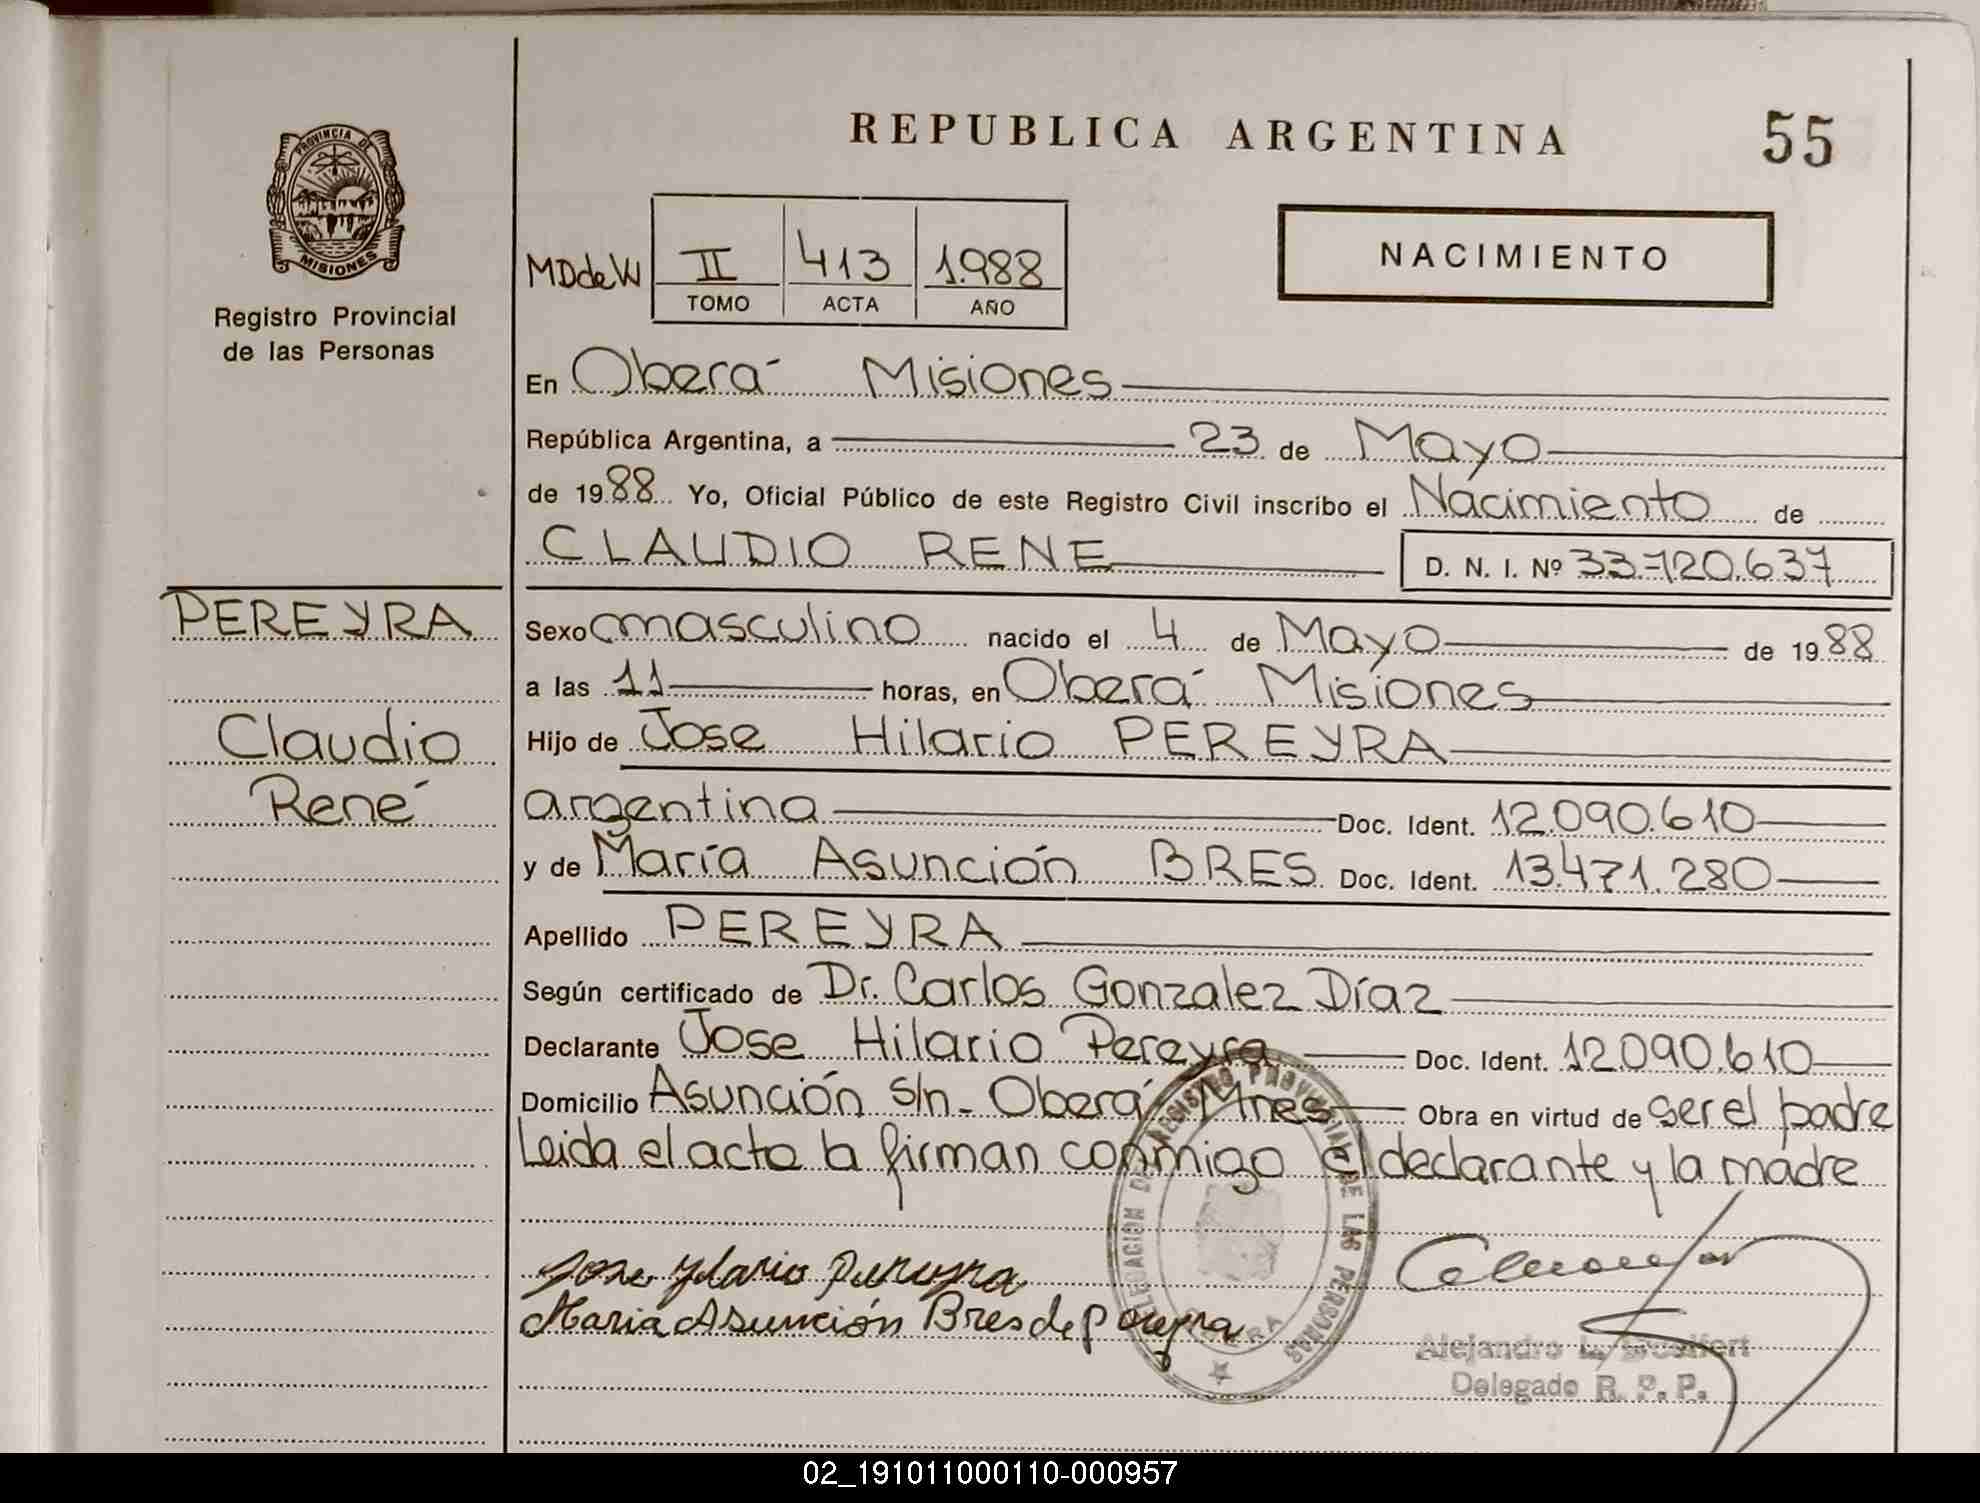 REPUBLICA ARGENTINA
55
PROVINCIA DE
MISIONES
Registro Provincial
de las Personas
MDdeW
II
413
1.988
TOMO
ACTA
AÑO
NACIMIENTO
En Oberá Misiones
República Argentina, a 23 de Mayo
de 1988 Yo, Oficial Público de este Registro Civil inscribo el Nacimiento de
CLAUDIO RENE
D. N. I. Nº 33.720.637
PEREYRA
Claudio
René
Sexo masculino nacido el 4 de Mayo de 1988
a las 11 horas, en Oberá Misiones
Hijo de Jose Hilario PEREYRA
argentina Doc. Ident. 12.090.610
y de María Asunción BRES Doc. Ident. 13.471.280
Apellido PEREYRA
Según certificado de Dr. Carlos Gonzalez Díaz
Declarante Jose Hilario Pereyra Doc. Ident. 12.090.610
Domicilio Asunción s/n - Oberá Mnes Obra en virtud de ser el padre
Leida el acta la firman conmigo el declarante y la madre
Jose Ylario Pereyra
Maria Asunción Bres de Pereyra
DELEGACION DEL REGISTRO PROVINCIAL DE LAS PERSONAS
Alejandro L.
Delegado R. P. P.
02_191011000110-000957